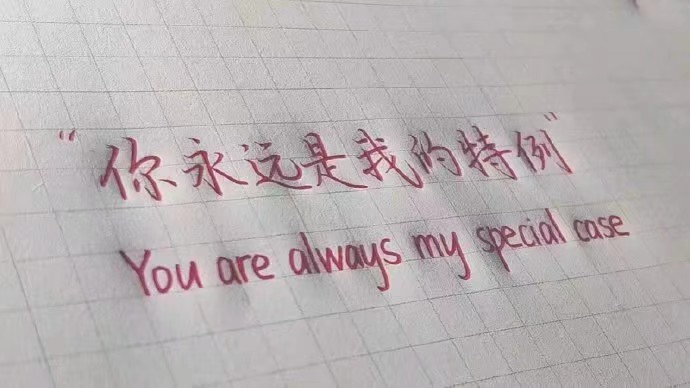 "你永远是我的特例"
You are always my special case